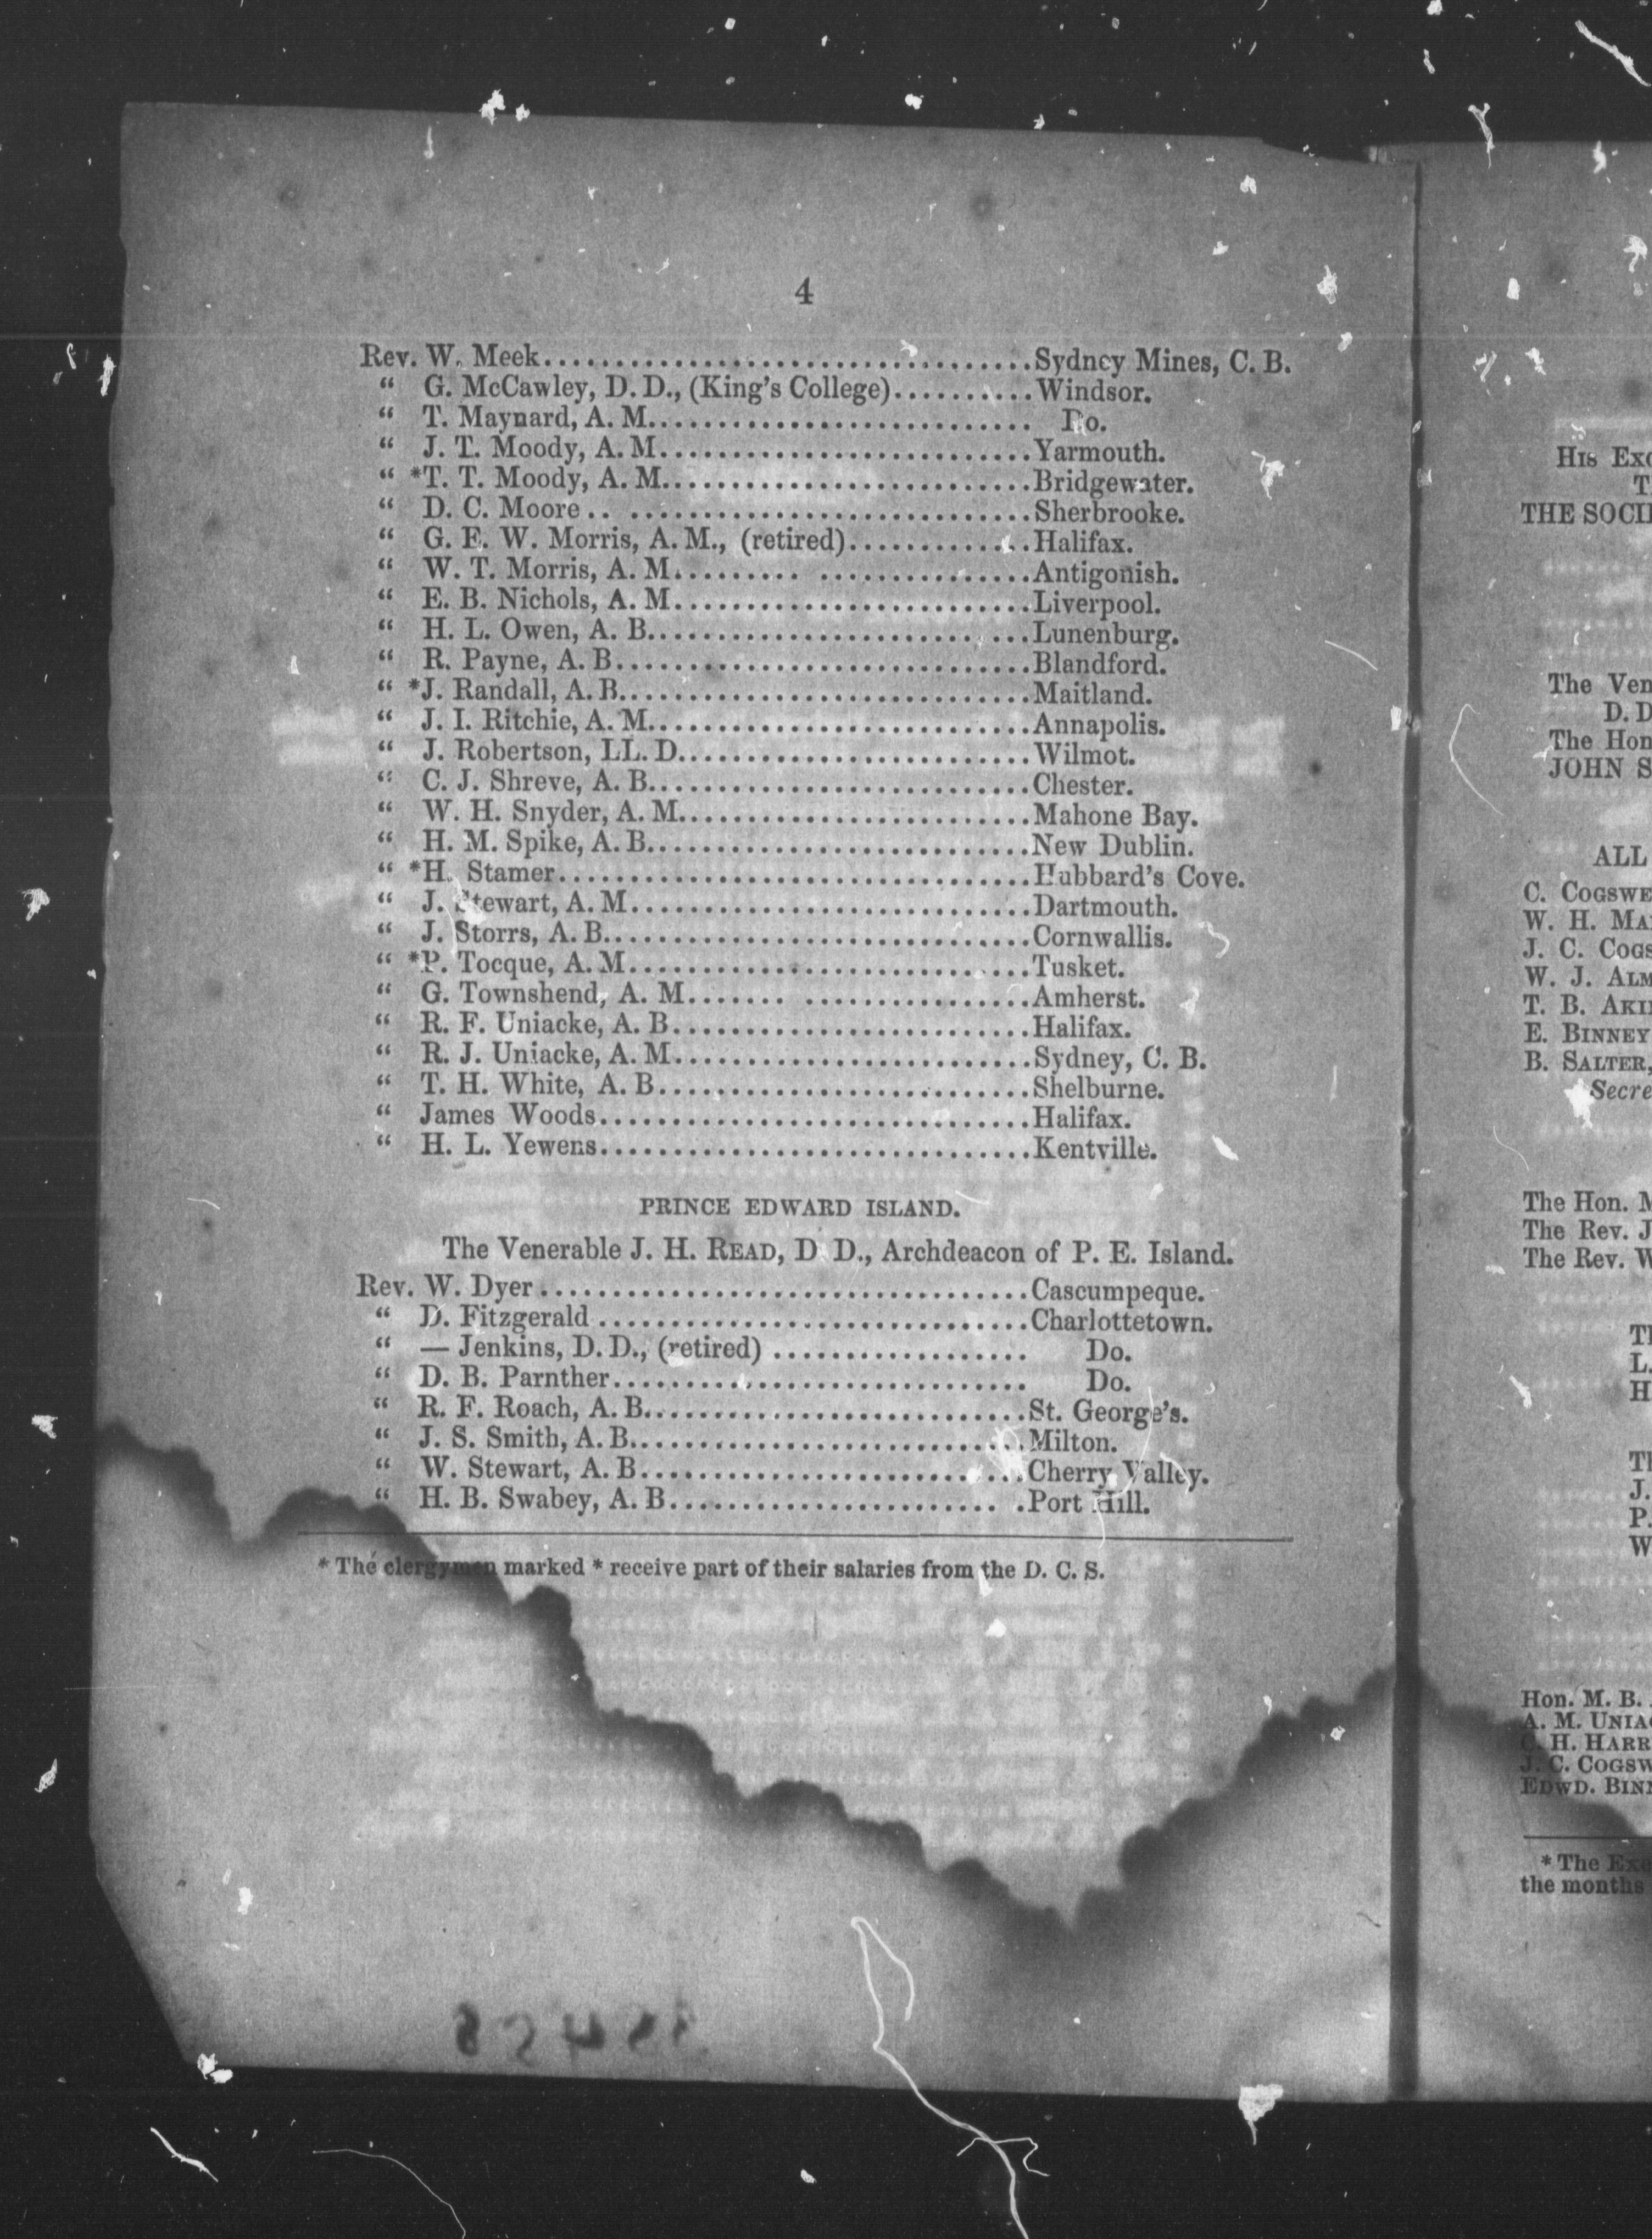 4
Rev. W. Meek................................Sydney Mines, C. B.
“ G. McCawley, D. D., (King's College)..........Windsor.
“ T. Maynard, A. M............................ Do.
“ J. T. Moody, A. M...........................Yarmouth.
“ *T. T. Moody, A. M..........................Bridgewater.
“ D. C. Moore.. ............................Sherbrooke.
“ G. E. W. Morris, A. M., (retired).............Halifax.
“ W. T. Morris, A. M......... ................Antigonish.
“ E. B. Nichols, A. M.........................Liverpool.
“ H. L. Owen, A. B....................... ...Lunenburg.
“ R. Payne, A. B.............................Blandford.
“ *J. Randall, A. B............................Maitland.
“ J. I. Ritchie, A. M...........................Annapolis.
“ J. Robertson, LL. D.........................Wilmot.
“ C. J. Shreve, A. B...........................Chester.
“ W. H. Snyder, A. M.........................Mahone Bay.
“ H. M. Spike, A. B...........................New Dublin.
“ *H. Stamer.................................Hubbard's Cove.
“ J. Stewart, A. M............................Dartmouth.
“ J. Storrs, A. B..............................Cornwallis.
“ *P. Tocque, A. M............................Tusket.
“ G. Townshend, A. M....... ................Amherst.
“ R. F. Uniacke, A. B.........................Halifax.
“ R. J. Uniacke, A. M.........................Sydney, C. B.
“ T. H. White, A. B..........................Shelburne.
“ James Woods..............................Halifax.
“ H. L. Yewens..............................Kentville.
PRINCE EDWARD ISLAND.
The Venerable J. H. READ, D D., Archdeacon of P. E. Island.
Rev. W. Dyer..................................Cascumpeque.
“ D. Fitzgerald ..............................Charlottetown.
“ — Jenkins, D. D., (retired) .................. Do.
“ D. B. Parnther............................. Do.
“ R. F. Roach, A. B...........................St. George's.
“ J. S. Smith, A. B............................Milton.
“ W. Stewart, A. B...........................Cherry Valley.
“ H. B. Swabey, A. B....................... .Port Hill.
* The clergymen marked * receive part of their salaries from the D. C. S.
HIS
T
THE
The
D. D
The
JOHN S
ALL
C.
W. H.
J. C.
W. J.
T. B.
E. BINNEY
B. SALTER,
The Hon. M
The Rev. J
The Rev. W
L.
H
J.
P.
W
Hon. M. B.
A. M.
C. H.
J. C.
EDWD.
* The
the months